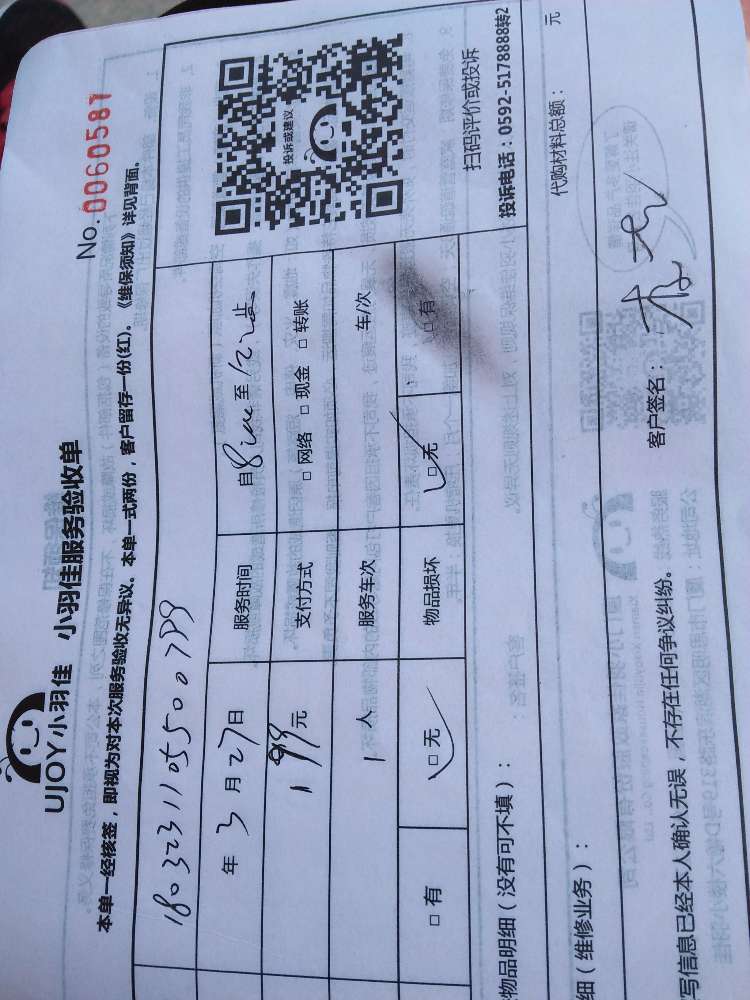 UJOY小羽佳 小羽佳服务验收单
No.0060587
本单一经核签，即视为对本次服务验收无异议。本单一式两份，客户留存一份(红)。《维保须知》详见背面。
年3月27日 服务时间 自 至 止
199元 支付方式 □网络 □现金 □转账
1人 服务车次 车/次
□有 □无 物品损坏 □无 □有
投诉或建议
扫码评价或投诉
投诉电话：0592-5178888转2
物品明细（没有可不填）：
细（维修业务）： 代购材料总额： 元
写信息已经本人确认无误，不存在任何争议纠纷。 客户签名：